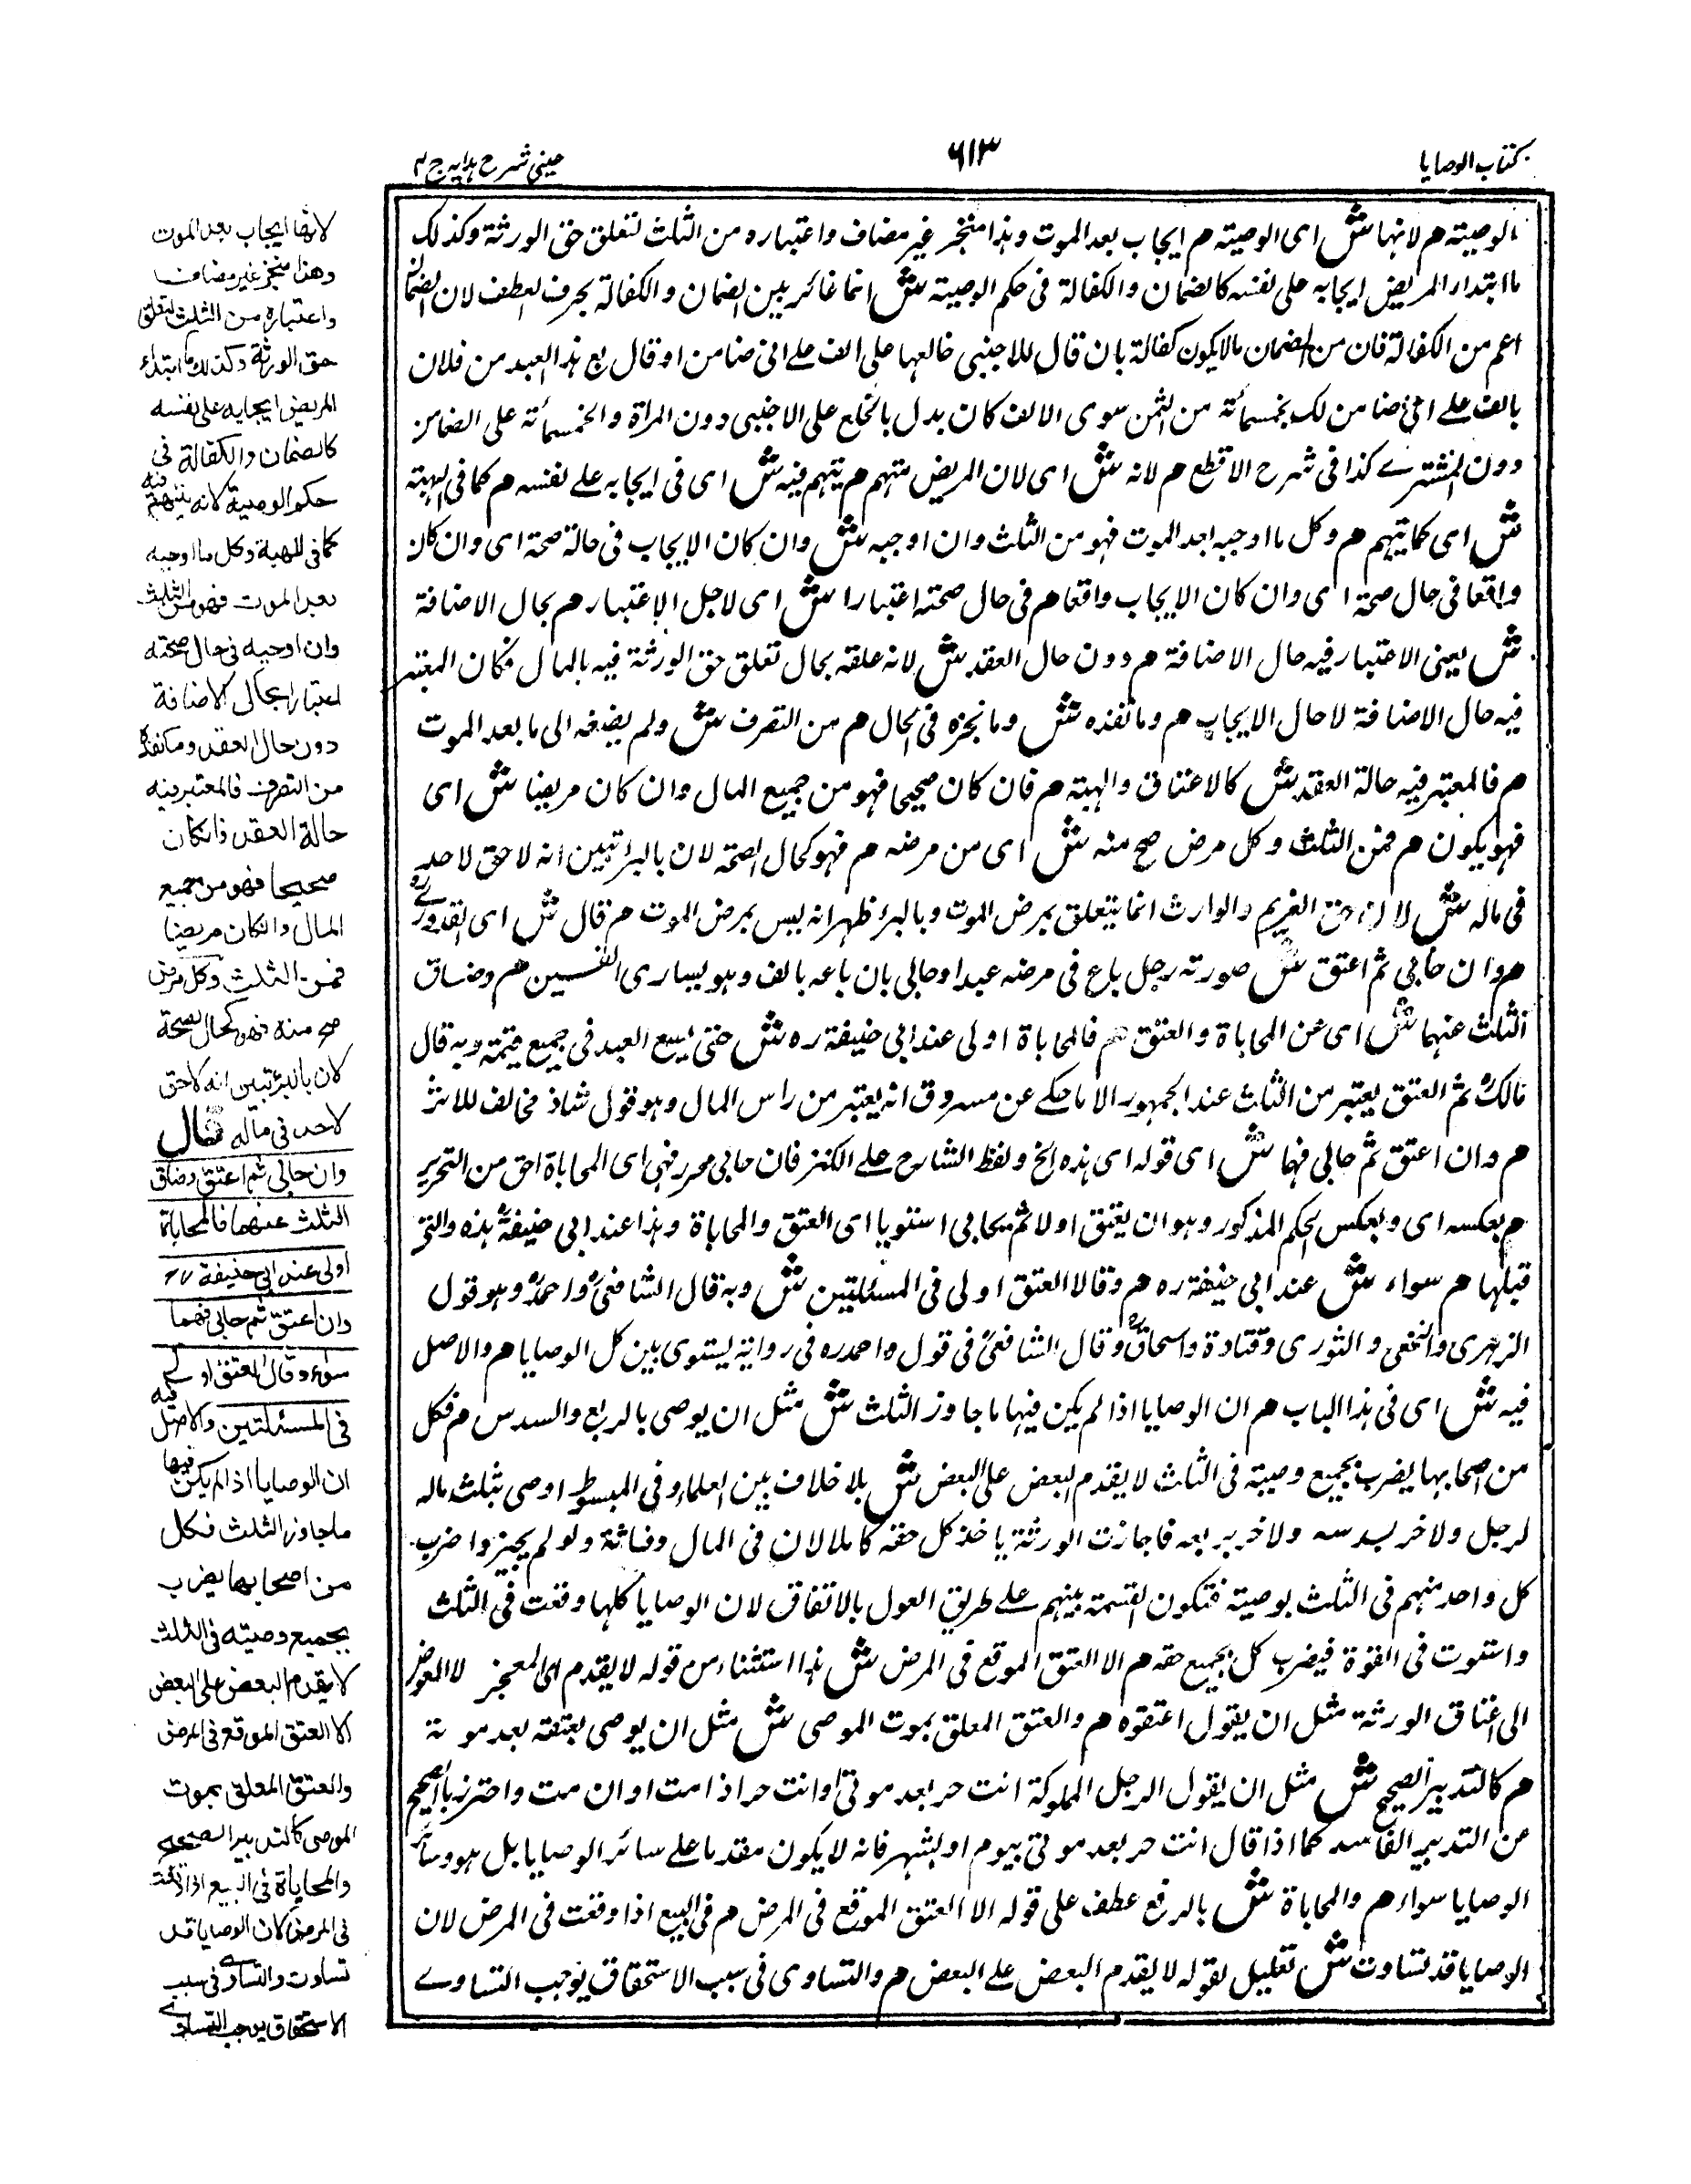 كتاب الوصايا
٦١٣
عيني شرح هدايه ج ٤
الوصيته م لانها ش اى الوصيته م ايجاب بعد الموت وهذا منجز غير مضاف واعتباره من الثلث لتعلق حق الورثة وكذلك
ما ابتداء المريض ايجابه على نفسه كالضمان والكفالة فى حكم الوصية ش انما غائر بين الضمان والكفالة بحرف العطف لان الضمان
اعم من الكفالة فان من الضمان مالا يكون كفالة بان قال للاجنبى خالعها على الف على انى ضامن او قال بع هذا العبد من فلان
بالف على انى ضامن لك بخمسمائة من الثمن سوى الالف كان بدل بالخلع على الاجنبى دون المراة والخمسمائة على الضامن
دون المشترے كذا فى شرح الاقطع م لانه ش اى لان المريض متهم م يتهم فيه ش اى فى ايجابه على نفسه م كما فى الهبة
ش اى كما يتهم م وكل ما اوجبه بعد الموت فهو من الثلث وان اوجبه ش وان كان الايجاب فى حالة صحة اى وان كان
واقعا فى حال صحة اى وان كان الايجاب واقعا م فى حال صحته اعتبارا ش اى لاجل الاعتبار م بحال الاضافة
ش يعنى الاعتبار فيه حال الاضافة م دون حال العقد ش لانه علقه بحال تعلق حق الورثة فيه بالمال فكان المعتبر
فيه حال الاضافة لا حال الايجاب م وما نفذه ش وما نجزه فى الحال م من التصرف ش ولم يضفه الى ما بعد الموت
م فالمعتبر فيه حالة العقد ش كالاعتاق والهبته م فان كان صحيحا فهو من جميع المال وان كان مريضا ش اى
فهو يكون م فمن الثلث وكل مرض صح منه ش اى من مرضه م فهو كحال الصحة لان بالبرء تبين انه لا حق لاحد
فى ماله ش لان حق الغريم والوارث انما يتعلق بمرض الموت وبالبرء ظهر انه ليس بمرض الموت م قال ش اى القدورے
م وان حابى ثم اعتق ش صورته رجل باع فى مرضه عبدا وحابى بان باعه بالف وهو يساوى الفين م وضاق
الثلث عنهما ش اى عن المحاباة والعتق م فالمحاباة اولى عند ابى حنيفة ره ش حتى يسع العبد فى جميع قيمته وبه قال
مالك ثم العتق يعتبر من الثلث عند الجمهور الا ما حكے عن مسروق انه يعتبر من راس المال وهو قول شاذ مخالف للاثر
م وان اعتق ثم حابى فهما ش اى قوله اى هذه الخ ولفظ الشارح على الكنز فان حابى محرر فهى اى المحاباة احق من التحرير
م بعكسه اى وبعكس الحكم المذكور وهو ان يعتق اولا ثم يحابى استويا اى العتق والمحاباة وهذا عند ابى حنيفة هذه والتى
قبلها م سواء ش عند ابى حنيفة ره م وقالا العتق اولى فى المسئلتين ش وبه قال الشافعى واحمد وهو قول
الزهرى والنخعى والثورى وقتادة واسحاق وقال الشافعى فى قول واحمد ره فى رواية يستوى بين كل الوصايا م والاصل
فيه ش اى فى هذا الباب م ان الوصايا اذا لم يكن فيها ما جاوز الثلث ش مثل ان يوصى بالربع والسدس م فكل
من اصحابها يضرب بجميع وصيته فى الثلث لا يقدم البعض على البعض ش بلا خلاف بين العلماء وفى المبسوط اوصى بثلث ماله
لرجل ولاخر بسدسه ولاخر بربعه فاجازت الورثة ياخذ كل حقه كاملا لان فى المال وفائه ولو لم يجيزوا ضرب
كل واحد منهم فى الثلث بوصيته فتكون القسمة بينهم على طريق العول بالاتفاق لان الوصايا كلها وقعت فى الثلث
واستوت فى القوة فيضرب كل بجميع حقه م الا العتق الموقع فى المرض ش هذا استثناء من قوله لا يقدم اى المنجز لا المفوض
الى اعتاق الورثة مثل ان يقول اعتقوه م والعتق المعلق بموت الموصى ش مثل ان يوصى بعتقه بعد موته
م كالتدبير الصحيح ش مثل ان يقول الرجل المملوكة انت حر بعد موتى او انت حر اذا مت او ان مت واحترز بالصحيح
من التدبير الفاسد كما اذا قال انت حر بعد موتى بيوم او بشهر فانه لا يكون مقدما على سائر الوصايا بل هو وسائر
الوصايا سواء م والمحاباة ش بالرفع عطف على قوله الا العتق الموقع فى المرض م فى البيع اذا وقعت فى المرض لان
الوصايا قد تساوت ش تعليل لقوله لا يقدم البعض على البعض م والتساوى فى سبب الاستحقاق يوجب التساوے
لانها ايجاب بعد الموت
وهذا منجز غير مضاف
واعتباره من الثلث لتعلق
حق الورثة وكذلك ما ابتداء
المريض ايجابه على نفسه
كالضمان والكفالة فى
حكم الوصية لانه يتهم فيه
كما فى الهبة وكل ما اوجبه
بعد الموت فهو من الثلث
وان اوجبه فى حال صحته
اعتبارا بحال الاضافة
دون حال العقد وما نفذه
من التصرف فالمعتبر فيه
حالة العقد فان كان
صحيحا فهو من جميع
المال وان كان مريضا
فمن الثلث وكل مرض
صح منه فهو كحال الصحة
لان بالبرء تبين انه لا حق
لاحد فى ماله قال
وان حابى ثم اعتق وضاق
الثلث عنهما فالمحاباة
اولى عند ابى حنيفة رح
وان اعتق ثم حابى فهما
سواء وقالا العتق اولے
فى المسئلتين والاصل فيه
ان الوصايا اذا لم يكن فيها
ما جاوز الثلث فكل
من اصحابها يضرب
بجميع وصيته فى الثلث
لا يقدم البعض على البعض
الا العتق الموقع فى المرض
والعتق المعلق بموت
الموصى كالتدبير الصحيح
والمحاباة فى البيع اذا وقعت
فى المرض لان الوصايا قد
تساوت والتساوى فى سبب
الاستحقاق يوجب التساوے